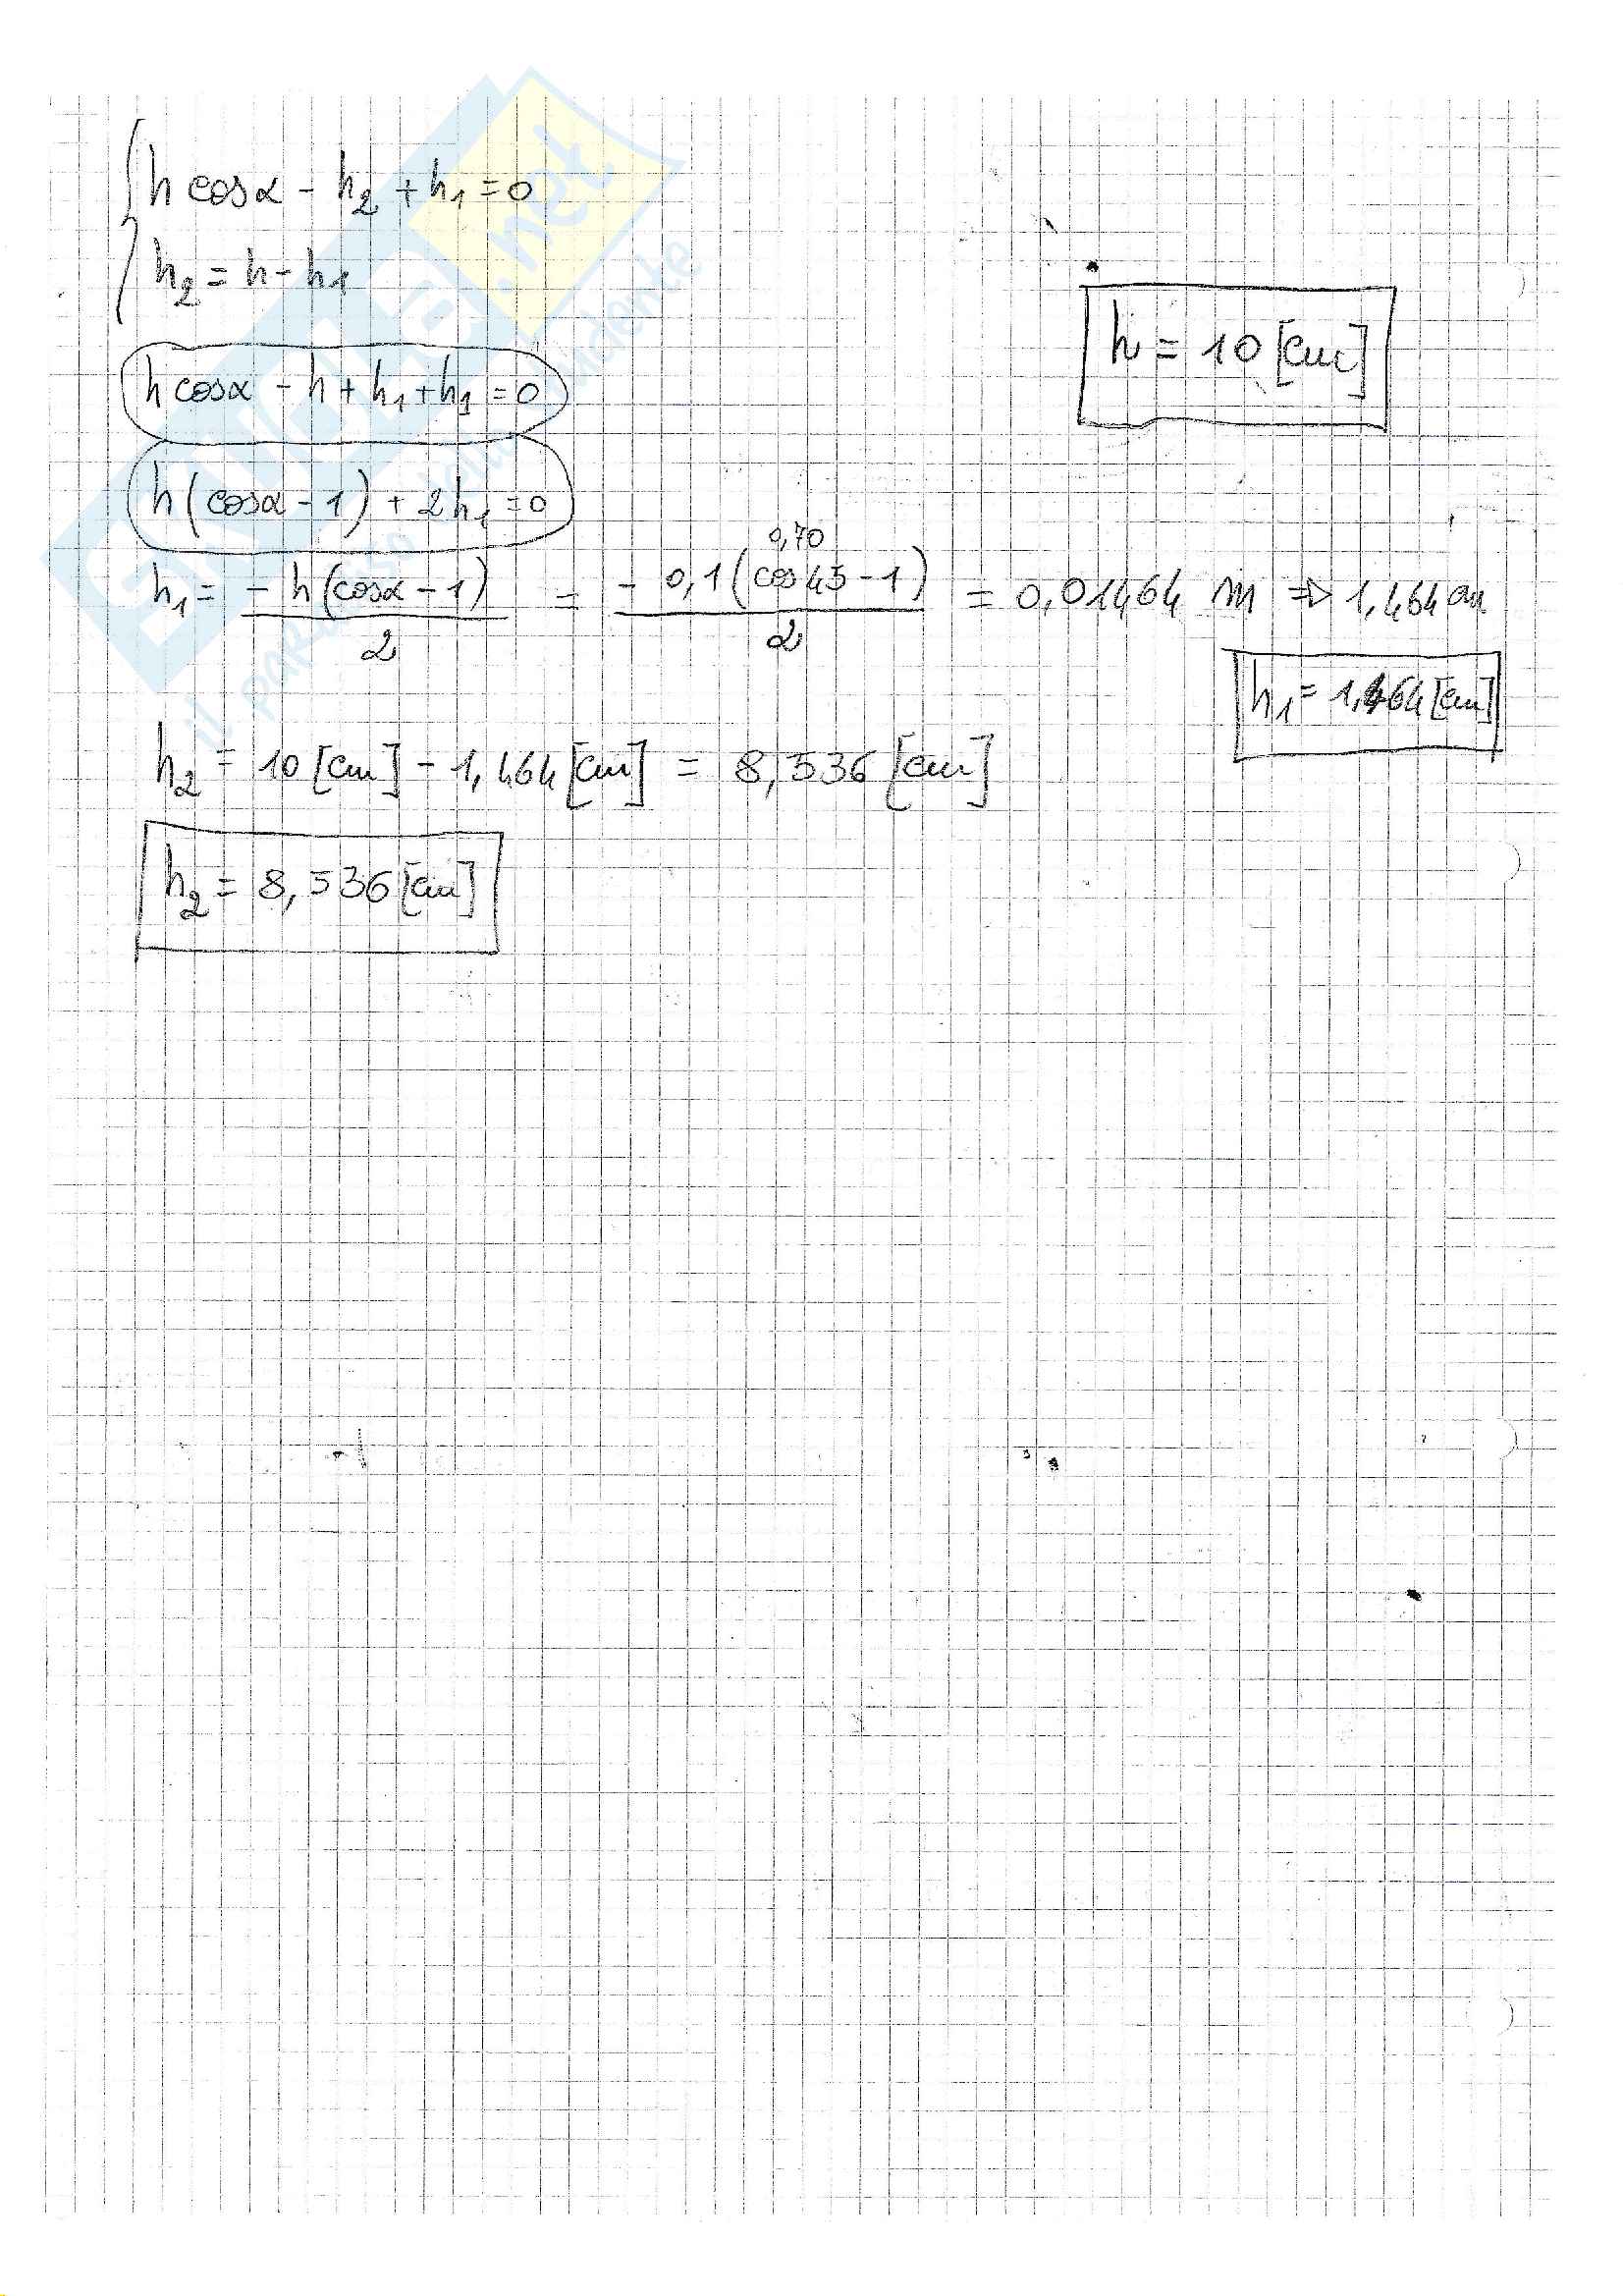 h cosα - h₂ + h₁ = 0
h₂ = h - h₁
h = 10 [cm]
h cosα - h + h₁ + h₁ = 0
h (cosα - 1) + 2h₁ = 0
0,70
h₁ = - h (cosα - 1) / 2 = - 0,1 (cos 45 - 1) / 2 = 0,01464 m ⇒ 1,464 cm
h₁ = 1,464 [cm]
h₂ = 10 [cm] - 1,464 [cm] = 8,536 [cm]
h₂ = 8,536 [cm]
.net